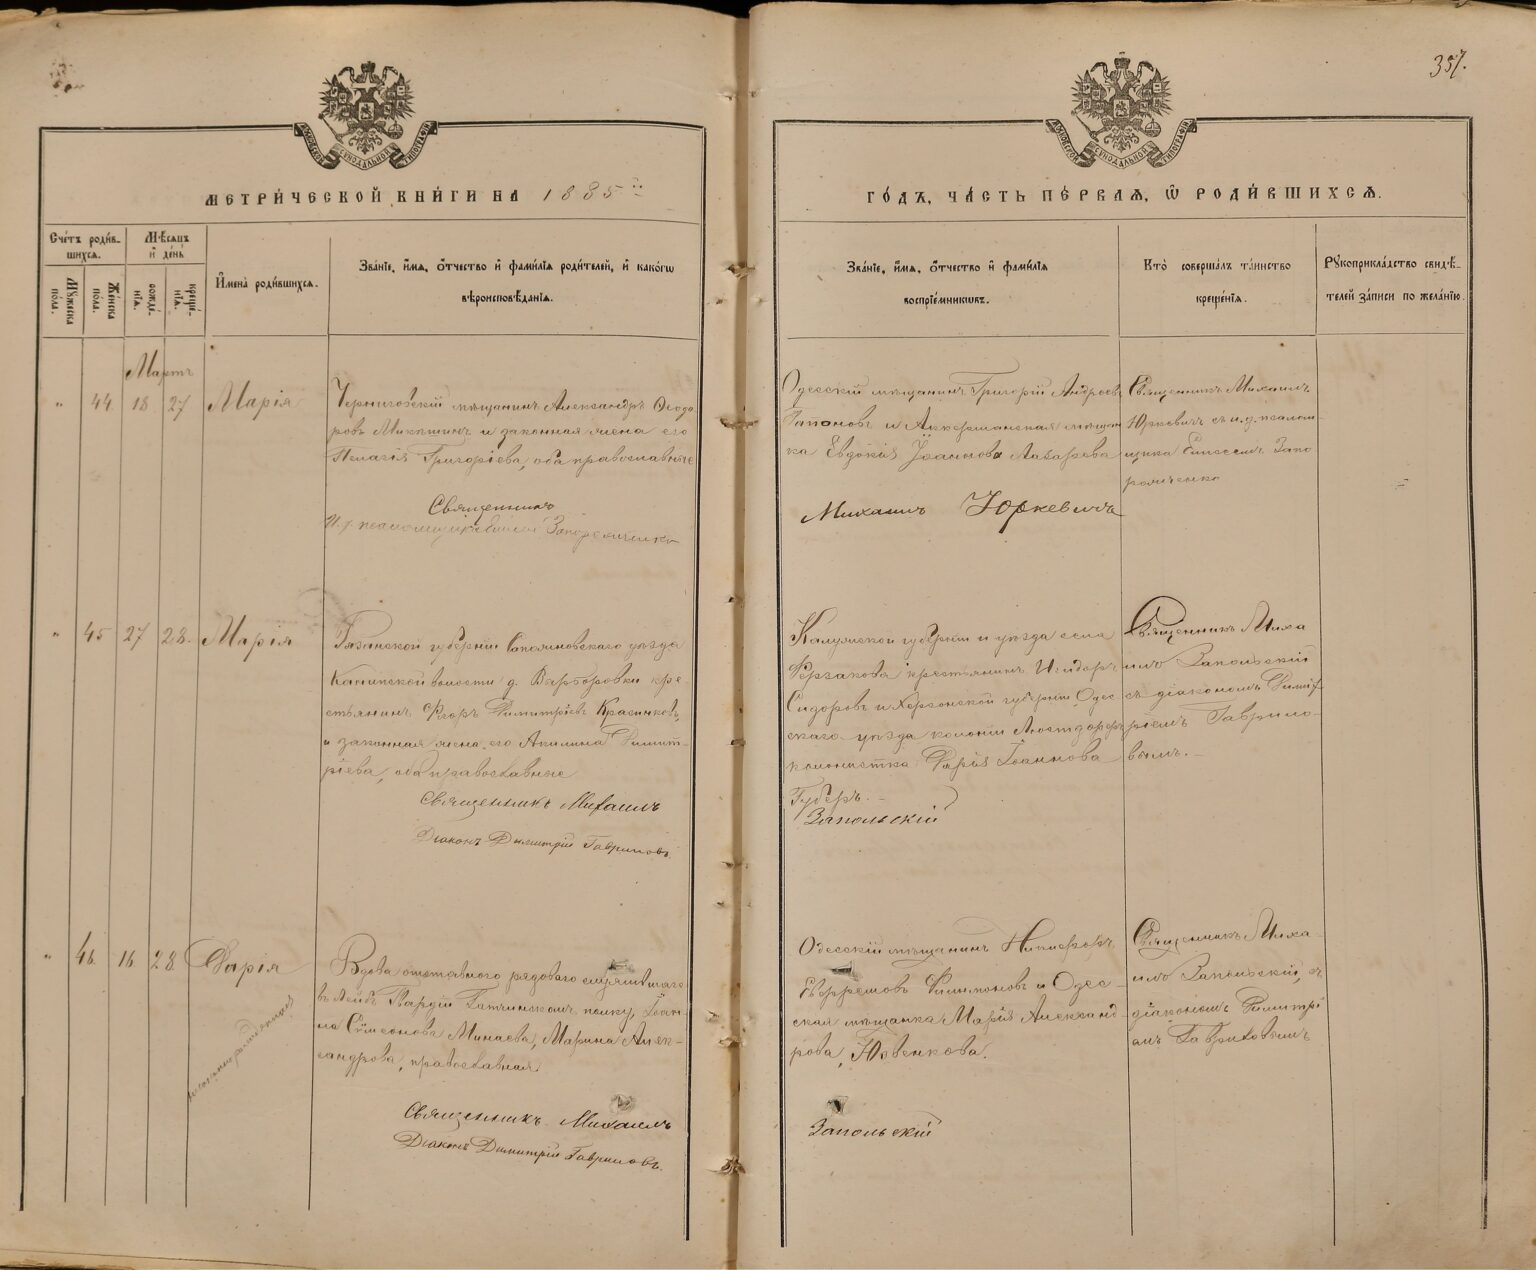 357.
МОСКОВСКОЙ СѴНОДАЛЬНОЙ ТИПОГРАФІИ
МОСКОВСКОЙ СѴНОДАЛЬНОЙ ТИПОГРАФІИ
МЕТРИ́ЧЕСКОЙ КНИ́ГИ НА 1885й
ГО́ДЪ, ЧА́СТЬ ПЕ́РВАѦ, Ѡ РОДИ́ВШИХСѦ.
Сче́тъ роди́в-
шихсѧ.
Мꙋ́жеска
по́ла.
Же́нска
по́ла.
Мѣ́сѧцъ
и҆ де́нь
рожде́-
нїѧ.
креще́-
нїѧ.
И҆мена̀ роди́вшихсѧ.
Зва́нїе, и҆́мѧ, ѻ҆́тчество и҆ фами́лїѧ роди́телей, и҆ како́гѡ
вѣроисповѣ́данїѧ.
Зва́нїе, и҆́мѧ, ѻ҆́тчество и҆ фами́лїѧ
воспрїе́мникѡвъ.
Кто̀ соверша́лъ та́инство
креще́нїѧ.
Рꙋкоприкла́дство свидѣ́-
телей за́писи по жела́нїю.
Мартъ
" 44 18 27 Марія
Черниговскій мѣщанинъ Александръ Ѳеодо
ровъ Микешинъ и законная жена его
Пелагія Григоріева, оба православные
Священникъ
И. д. псаломщика Запорожченко
Одесскій мѣщанинъ Григорій Андреевъ
Гапоновъ и Аккерманская мѣщан
ка Евдокія Іоаннова Лазарева
Михаилъ Юркевичъ
Священникъ Михаилъ
Юркевичъ съ и. д. псалом-
щика Запо
рожченко
" 45 27 28. Марія
Рязанской губерніи Сапожковскаго уѣзда
Канинской волости д. кре-
стьянинъ Егоръ Димитріевъ Красниковъ,
и законная жена его Акилина Димит-
ріева, оба православные
Священникъ Михаилъ
Діаконъ Димитрій Гавриловъ
Калужской губерніи и уѣзда села
крестьянинъ Исидоръ
Сидоровъ и Херсонской губерніи Одес
скаго уѣзда колоніи Люстдорфъ
колонистка Дарія Іоаннова
Губеръ. -
Запольскій
Священникъ Миха
илъ Запольскій
съ діакономъ Димит
ріемъ Гаврило-
вымъ. -
" 46. 16. 28 Дарія
незаконнорожденная
Вдова отставного рядоваго служившаго
въ Лейбъ Гвардіи Гатчинскомъ полку, Іоан-
на Симеонова Минаева, Марина Алек-
сандрова, православная
Священникъ Михаилъ
Діаконъ Димитрій Гавриловъ.
Одесскій мѣщанинъ Никифоръ
Филимоновъ и Одес-
ская мѣщанка Марія Александ-
рова, Юзвенкова.
Запольскій
Священникъ Миха-
илъ Запольскій, съ
діакономъ Димитрі
емъ Гавриловымъ